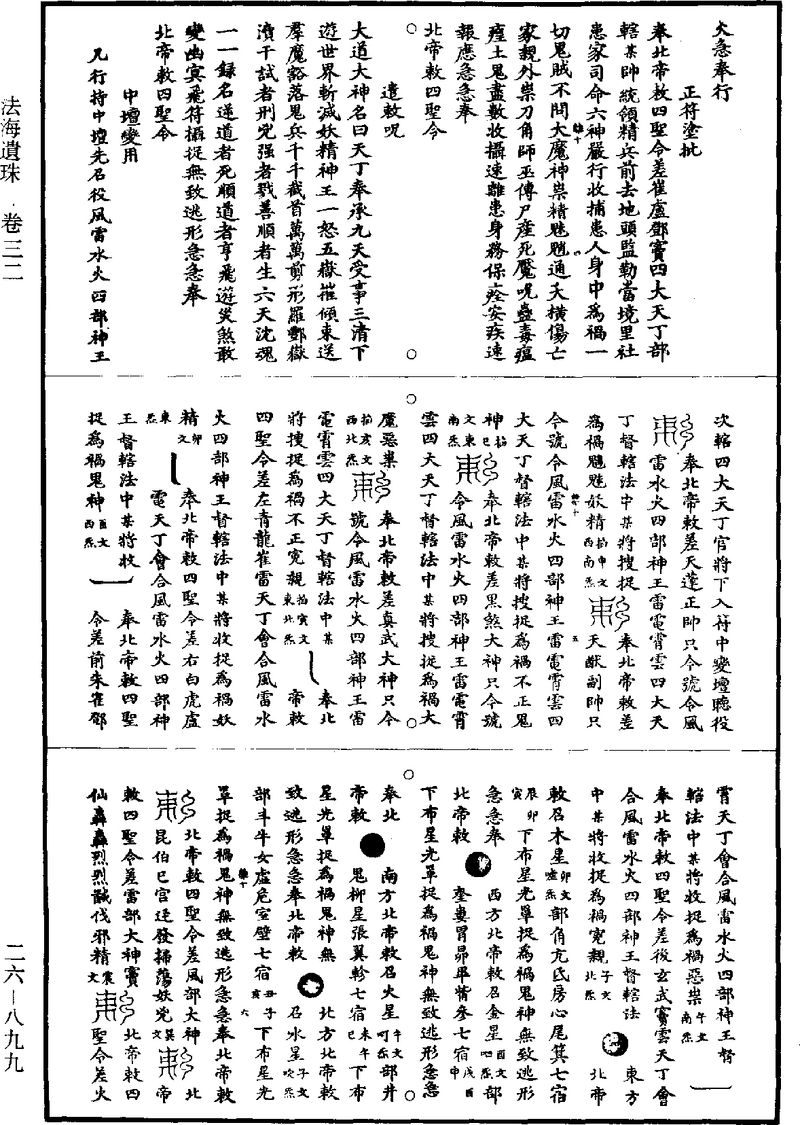 火急奉行
正符塗批
奉北帝敕四聖令差崔盧鄧竇四大天丁部
轄某帥統領精兵前去地頭監勒當境里社
患家司命六神嚴行收捕患人身中為禍一
切鬼賊不問大魔神祟精魅魍通夭橫傷亡
家親外祟刀角師巫傳尸產死魘呪蠱毒瘟
㾮土鬼盡數收攝速離患身務保痊安疾速
報應急急奉
北帝敕四聖令
遣敕呪
大道大神名曰天丁奉承九天受事三清下
遊世界斬滅妖精神王一怒五嶽摧傾東送
群魔豁落鬼兵千千截首萬萬剪形羅酆嶽
瀆干試者刑兇強者戮善順者生六天沈魂
一一錄名逆道者死順道者亨飛遊炎煞敢
變幽冥飛符攝捉無致逃形急急奉
北帝敕四聖令
中壇變用
凡行持中壇先召役風雷水火四部神王
次轄四大天丁官將下入符中變壇聽役
奉北帝敕差天蓬正帥只令號令風
雷水火四部神王雷電霄雲四大天
丁督轄法中某將搜捉
為禍魑魅妖精 掐申文西南炁 奉北帝敕差
天猷副帥只
令號令風雷水火四部神王雷電霄雲四
大天丁督轄法中某將搜捉為禍不正鬼
神 掐巳文東南炁 奉北帝敕差黑煞大神只令號
令風雷水火四部神王雷電霄
雲四大天丁督轄法中某將搜捉為禍大
魔惡祟 掐亥文西北炁 奉北帝敕差真武大神只令
號令風雷水火四部神王雷
電霄雲四大天丁督轄法中某
將搜捉為禍不正寃親 掐寅文東北炁 奉北
帝敕
四聖令差左青龍崔雷天丁會合風雷水
火四部神王督轄法中某將收捉為禍妖
精 卯文東炁 奉北帝敕四聖令差右白虎盧
電天丁會合風雷水火四部神
王督轄法中某將收
捉為禍鬼神 酉文西炁 奉北帝敕四聖
令差前朱雀鄧
霄天丁會合風雷水火四部神王督
轄法中某將收捉為禍惡祟 午文南炁
奉北帝敕四聖令差後玄武竇雲天丁會
合風雷水火四部神王督轄法
中某將收捉為禍寃親 子文北炁 東方
北帝
敕召木星 卯文噓炁 部角亢氐房心尾箕七宿
辰卯寅 下布星光罩捉為禍鬼神無致逃形
急急奉
北帝敕 西方北帝敕召金星 酉文呬炁 部
奎婁胃昴畢觜參七宿 戌酉申
下布星光罩捉為禍鬼神無致逃形急急
奉北
帝敕 南方北帝敕召火星 午文呵炁 部井
鬼柳星張翼軫七宿 未午巳 下布
星光罩捉為禍鬼神無
致逃形急急奉北帝敕 北方北帝敕
召水星 子文吹炁
部斗牛女虛危室壁七宿 丑子亥 下布星光
罩捉為禍鬼神無致逃形急急奉北帝敕
北帝敕四聖令差風部大神
昆伯巳宮迅發掃蕩妖兇 巽文 北
帝
敕四聖令差雷部大神竇
仙轟轟烈烈馘伐邪精 震文 北帝敕四
聖令差火
法海遺珠 卷三二
二六—八九九